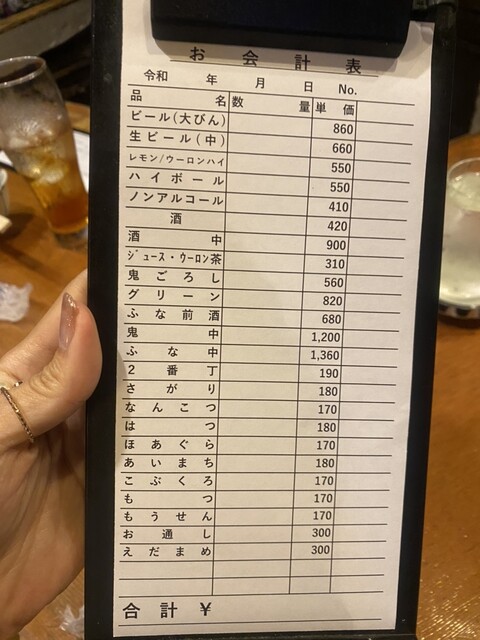 お会計表
令和 年 月 日 No.
品名 数量 単価
ビール(大びん) 860
生ビール(中) 660
レモン/ウーロンハイ 550
ハイボール 550
ノンアルコール 410
酒 420
酒中 900
ジュース・ウーロン茶 310
鬼ごろし 560
グリーン 820
ふな前酒 680
鬼中 1,200
ふな中 1,360
2番丁 190
さがり 180
なんこつ 170
はつ 180
ほあぐら 170
あいまち 180
こぶくろ 170
もつ 170
もうせん 170
お通し 300
えだまめ 300
合計 ¥